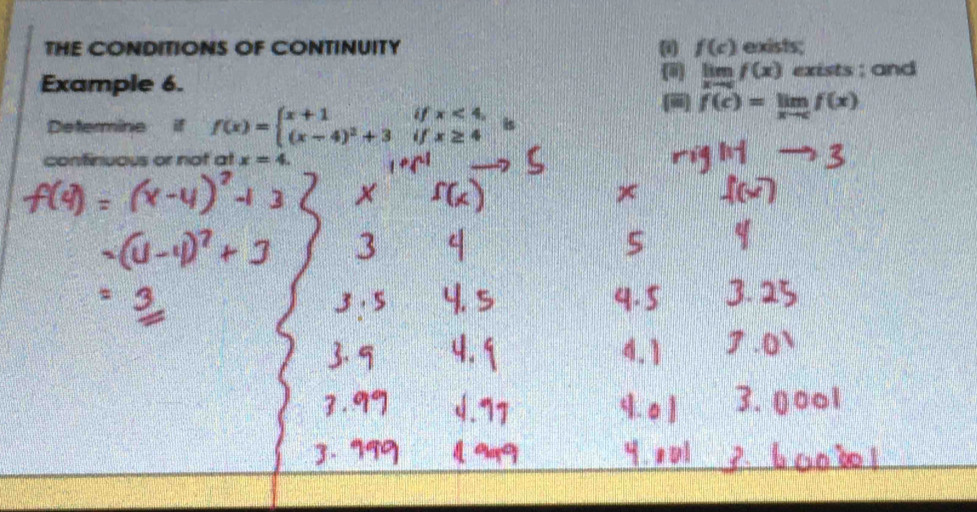 THE CONDITIONS OF CONTINUITY
Example 6.
Determine if f(x) = { x + 1 if x < 4,
(x − 4)² + 3 if x ≥ 4 is
continuous or not at x = 4.
(i) f(c) exists;
(ii) lim x→c f(x) exists ; and
(iii) f(c) = lim x→c f(x)
f(4) = (x-4)² + 3
= (4-4)² + 3
= 3
→ 5
x f(x)
3 4
3.5 4.5
3.9 4.9
3.99 4.99
3.999 4.999
right → 3
x f(x)
5 4
4.5 3.25
4.1 3.01
4.01 3.0001
4.001